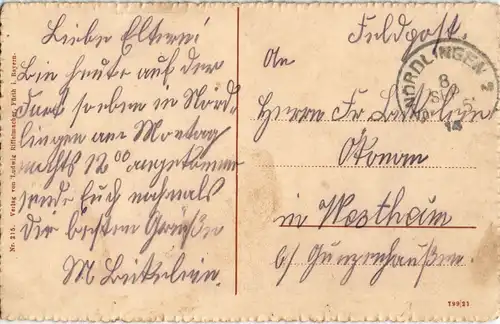 Liebe Eltern!
Bin heute auf der
Fart soeben in Nörd-
lingen am Montag
nachts 12⁰⁰ angekommen
sende Euch nochmals
die besten Grüße
M
Feldpost.
An
Herrn Fr.
Ökonom
in Westheim
b/ Gunzenhausen.
NÖRDLINGEN 2
8
SEP
14
Nr. 215. Verlag von Ludwig Riffelmacher, Fürth i. Bayern.
79921